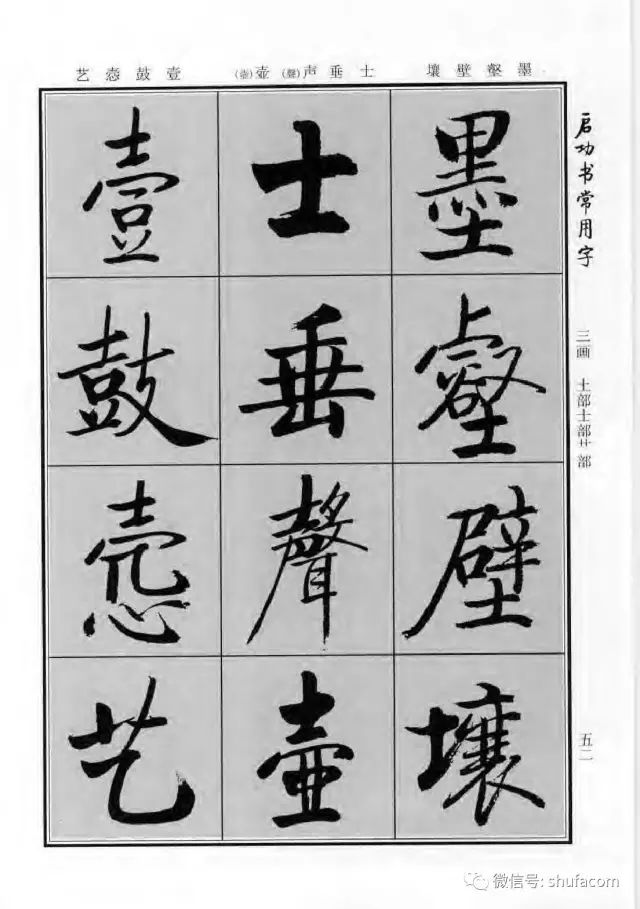 墨壑壁壤 士垂声(聲)壶(壺) 壹鼓悫艺
启功书常用字
三画 土部士部艹部
五二
墨壑壁壤
士垂聲壺
壹鼓悫艺
微信号: shufacom